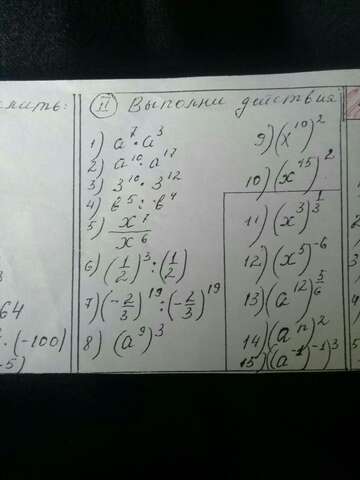 лить:
64
· (-100)
-5)
II Выполни действия
1) a⁷ · a³
2) a¹⁰ · a¹⁷
3) 3¹⁰ · 3¹²
4) b⁵ : b⁴
5) x⁷/x⁶
6) (1/2)³ : (1/2)
7) (-2/3)¹⁹ : (-2/3)¹⁹
8) (a⁹)³
9) (x¹⁰)²
10) (x¹⁵)²
11) (x³)^(1/3)
12) (x⁵)⁻⁶
13) (a¹²)^(5/6)
14) (aⁿ)²
15) (a⁻¹)⁻¹)³